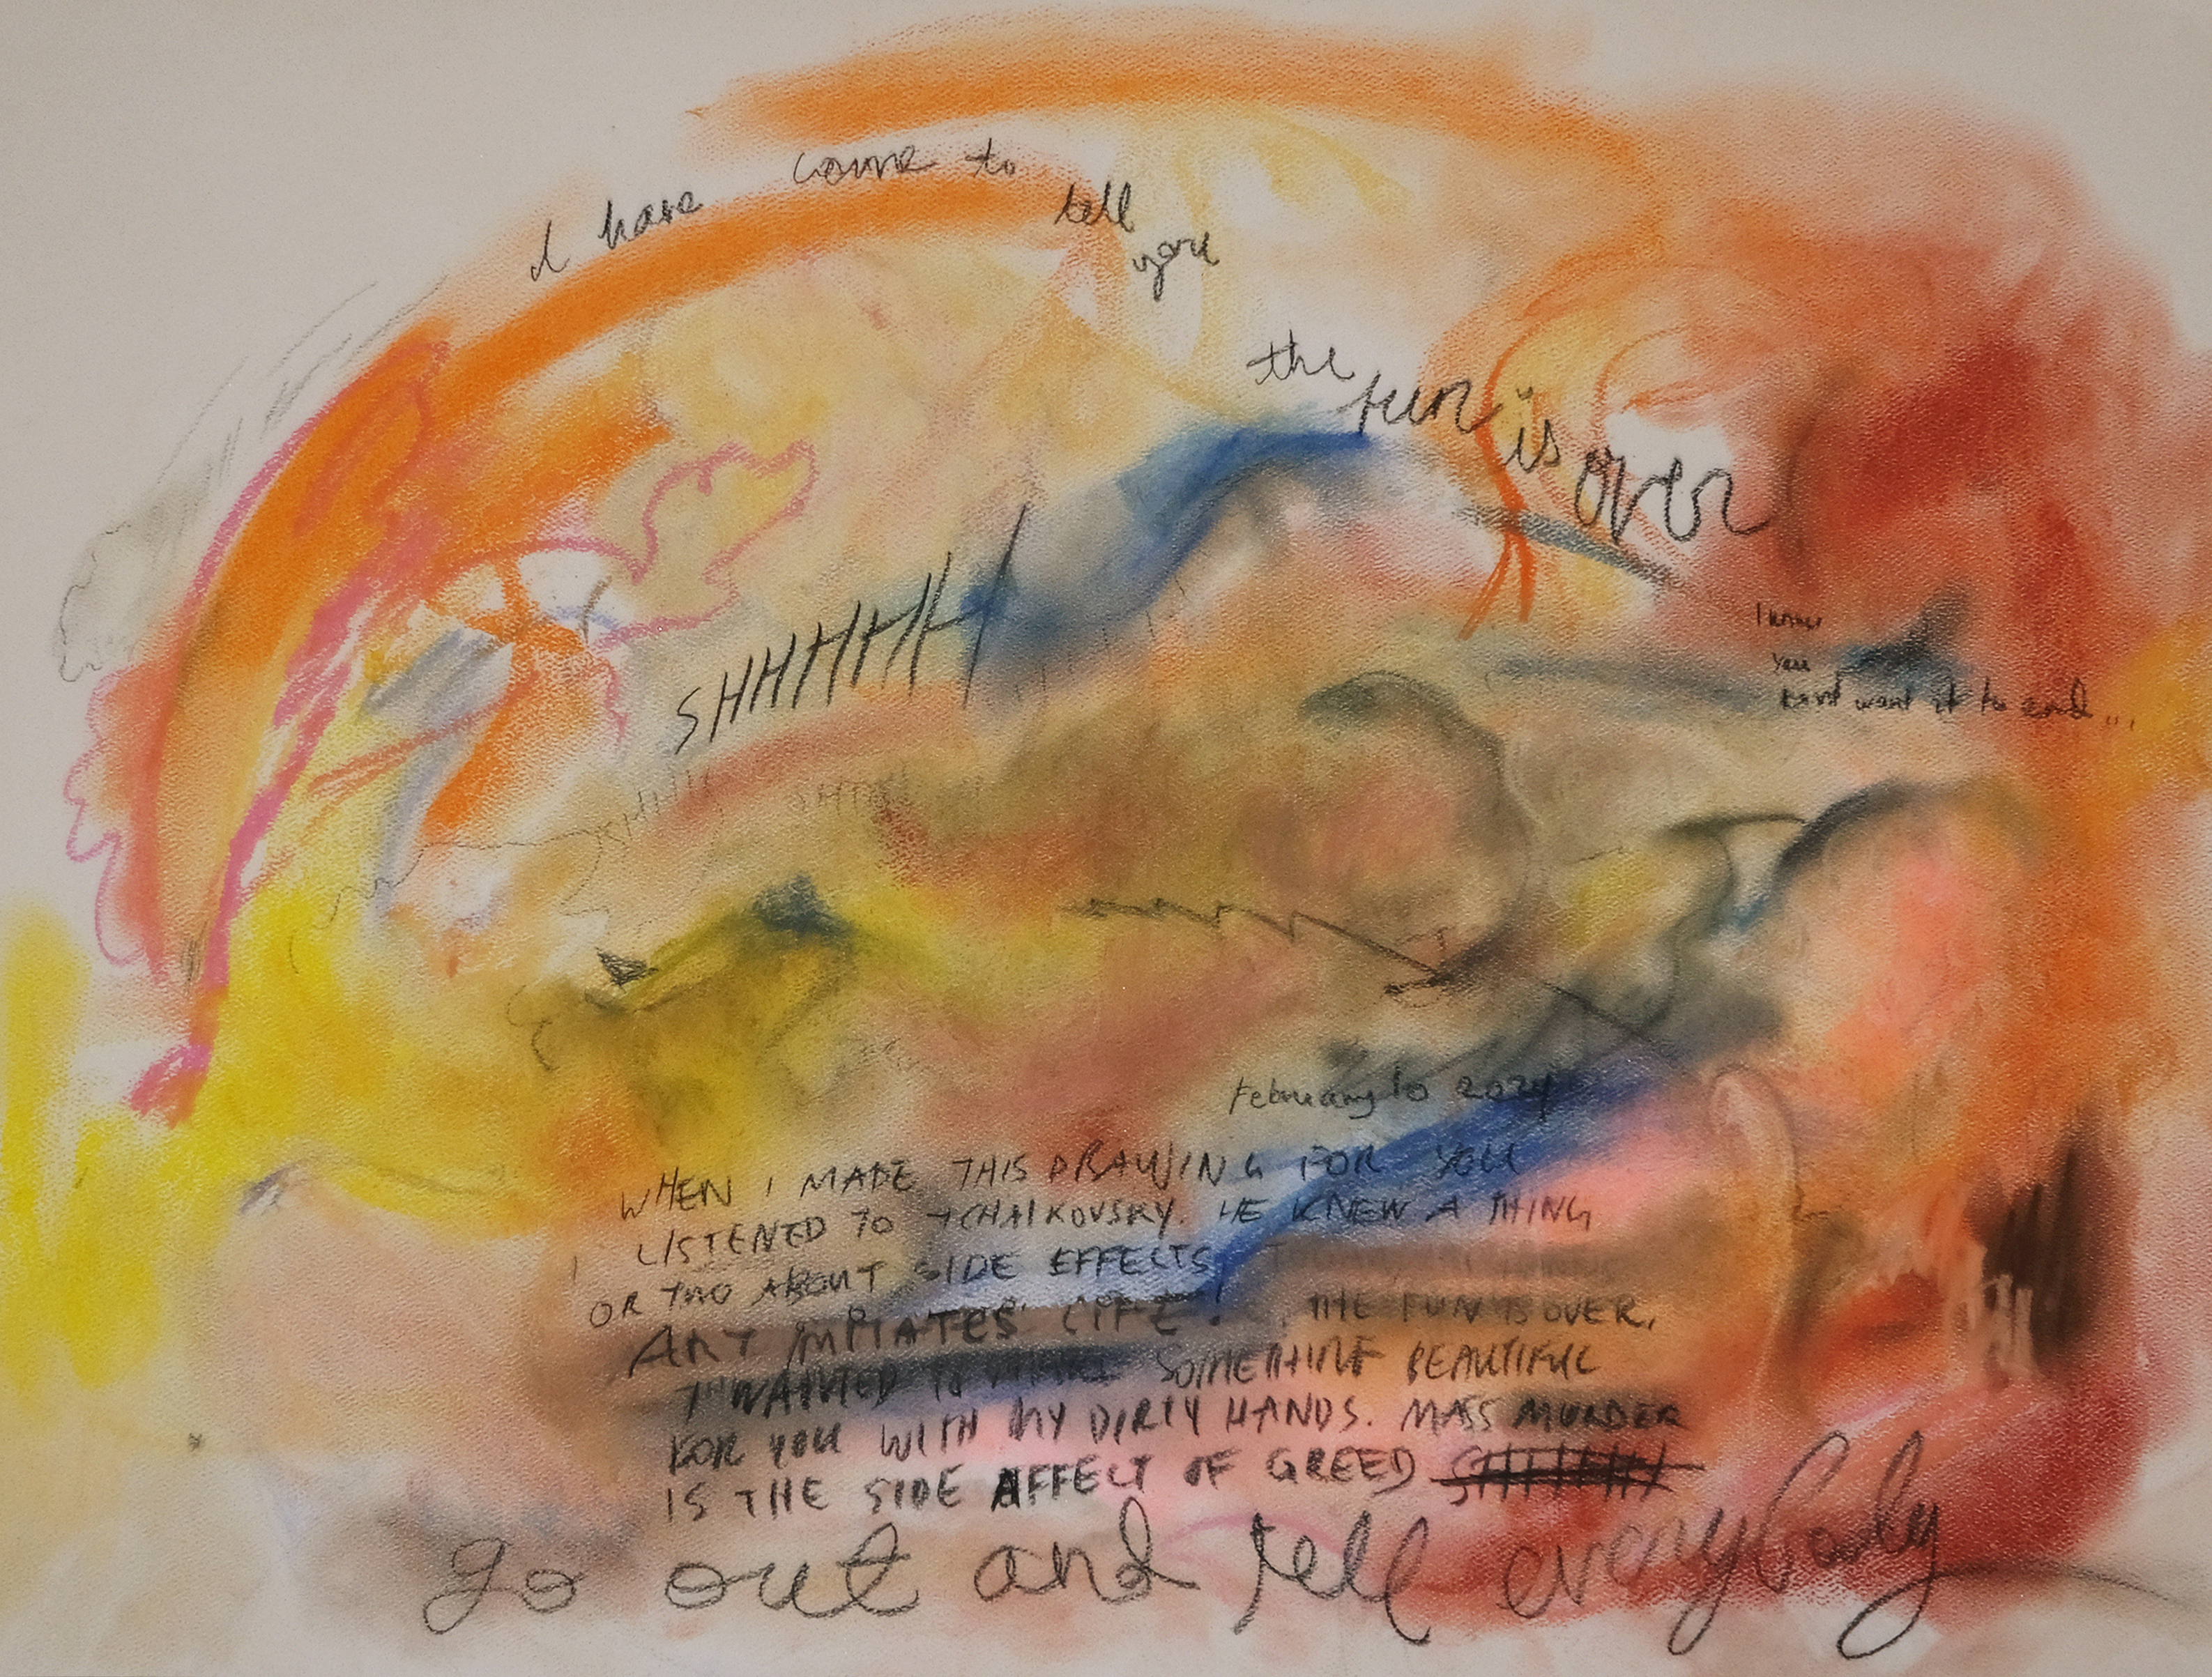 I have come to tell you
the fun is over
SHHHHHH
I know
you
don't want it to end...
SHHHH
SHHH
February 10 2024
WHEN I MADE THIS DRAWING FOR YOU
I LISTENED TO TCHAIKOVSKY. HE KNEW A THING
OR TWO ABOUT SIDE EFFECTS
ART IMITATES LIFE! THE FUN IS OVER,
I WANTED TO MAKE SOMETHING BEAUTIFUL
FOR YOU WITH MY DIRTY HANDS. MASS MURDER
IS THE SIDE AFFECT OF GREED
go out and tell everybody